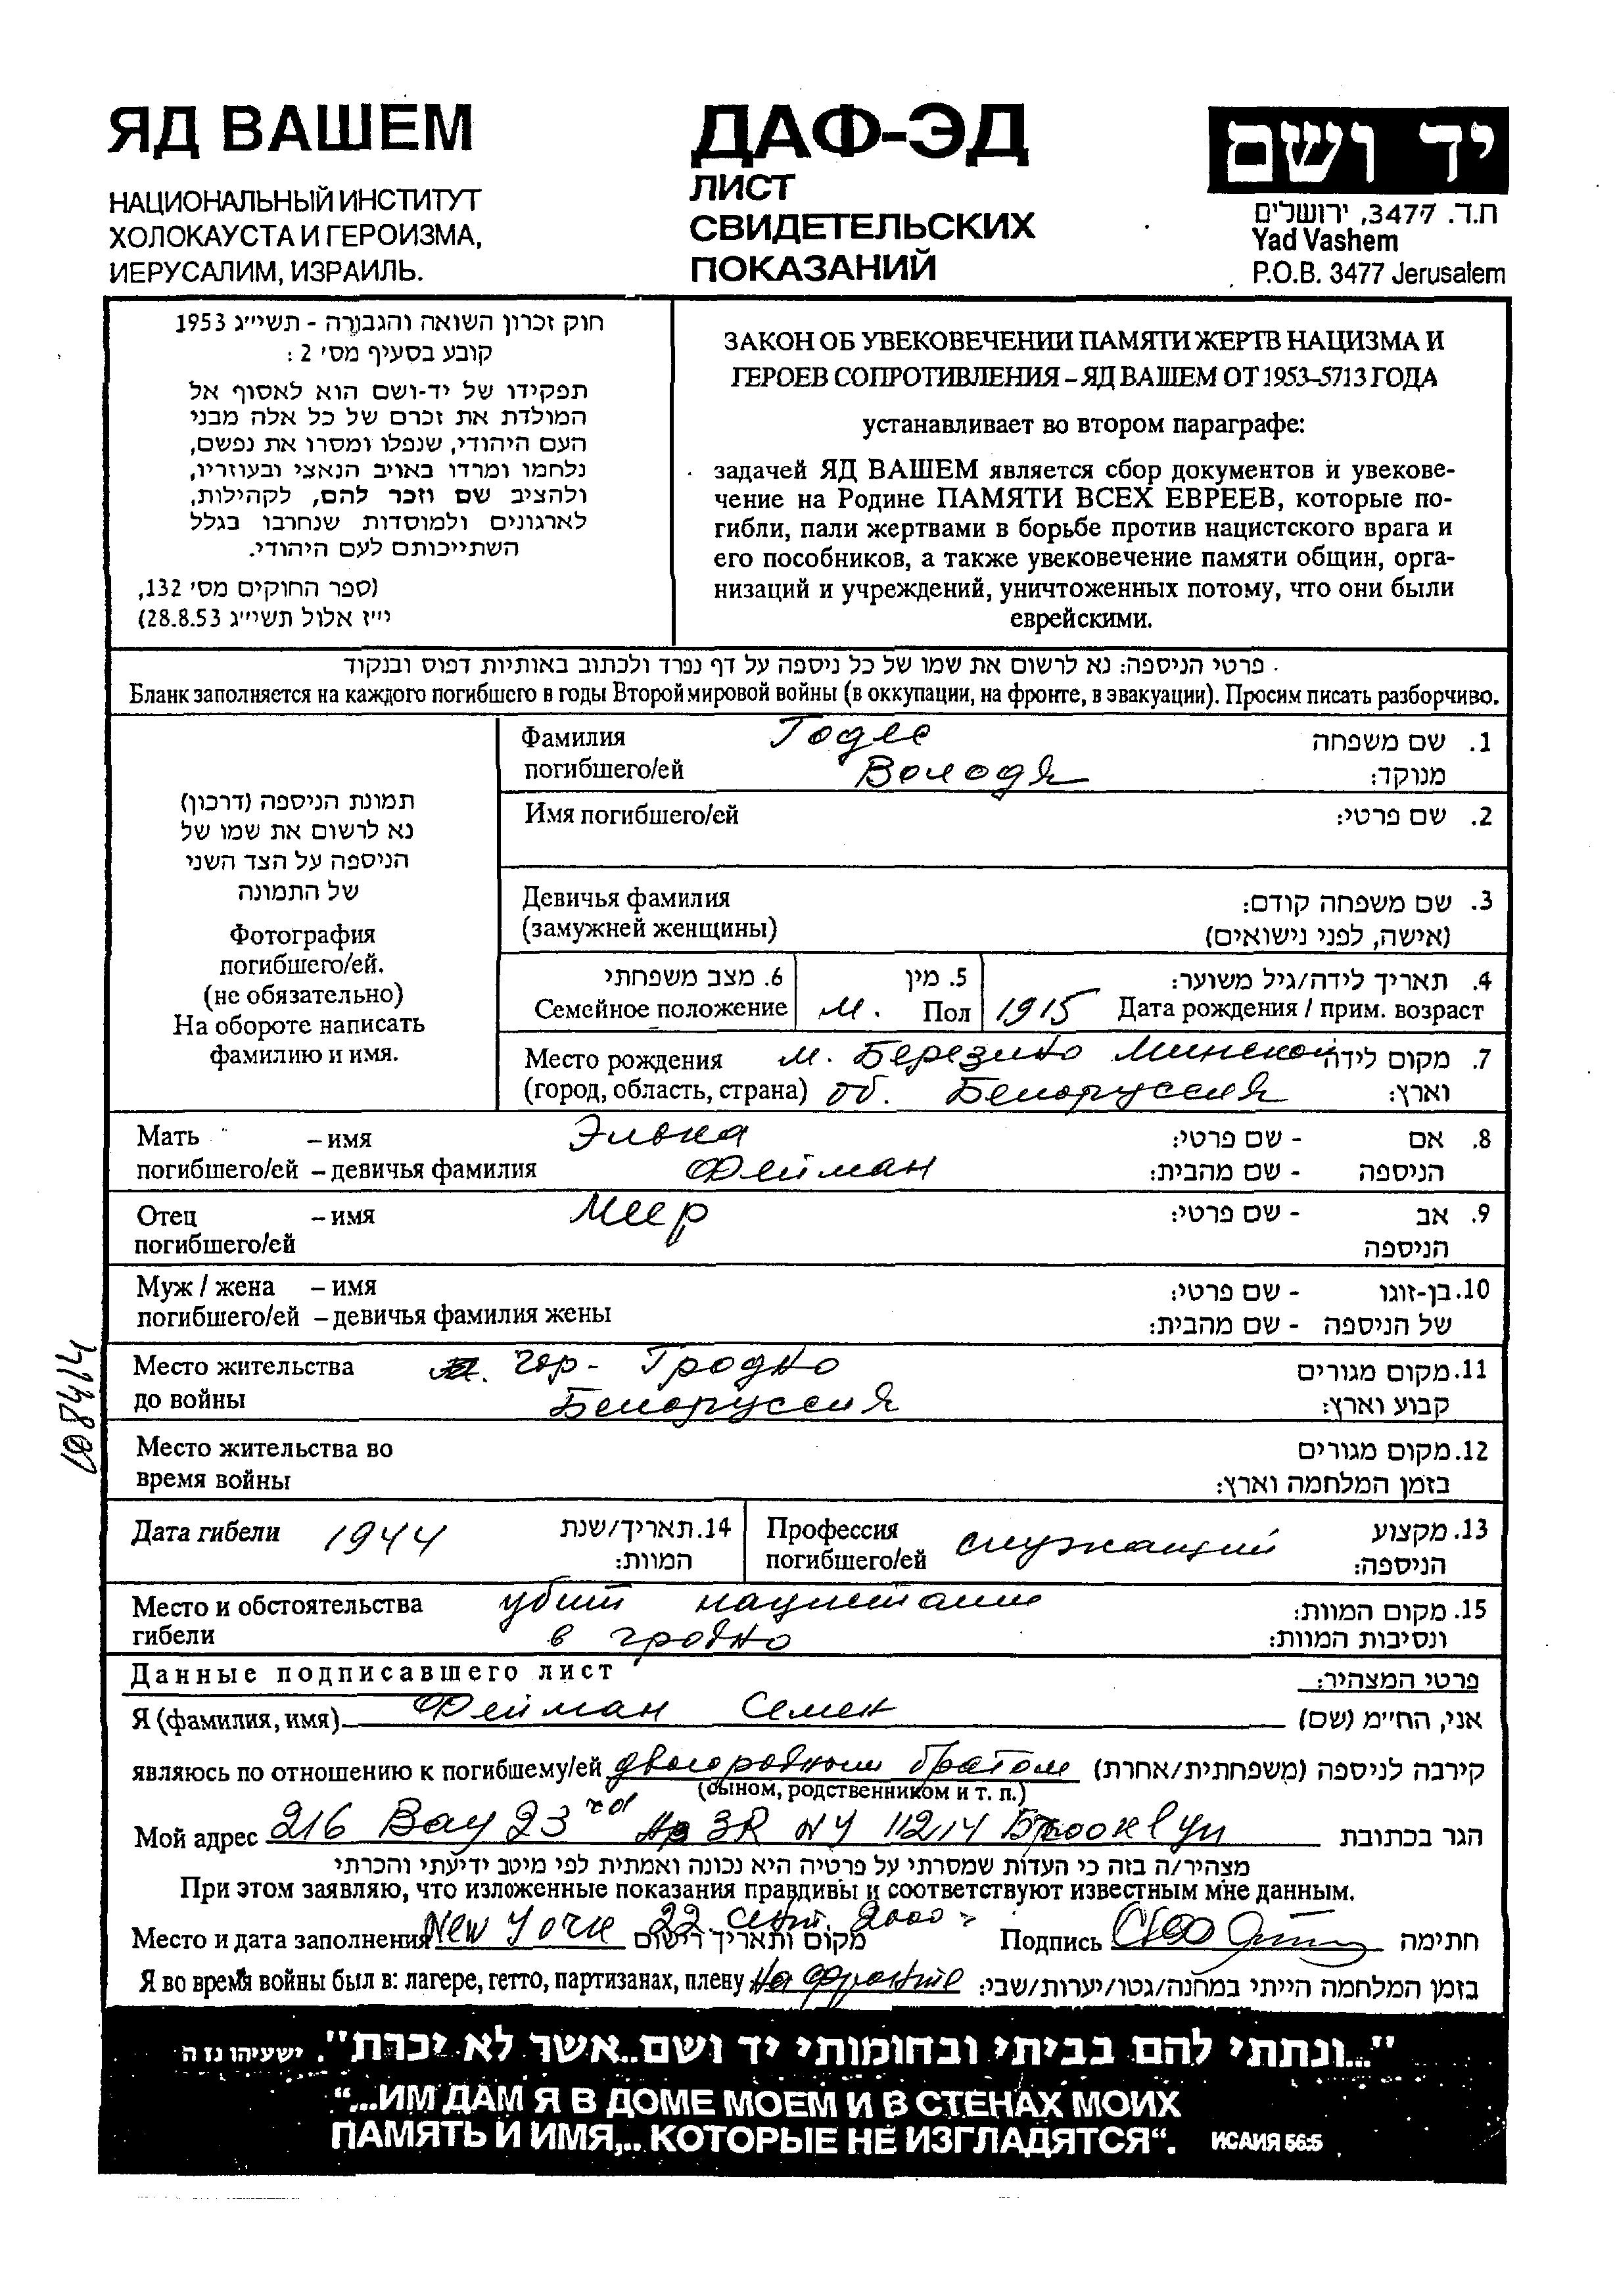 ЯД ВАШЕМ
НАЦИОНАЛЬНЫЙ ИНСТИТУТ
ХОЛОКАУСТА И ГЕРОИЗМА,
ИЕРУСАЛИМ, ИЗРАИЛЬ.
ДАФ-ЭД
ЛИСТ
СВИДЕТЕЛЬСКИХ
ПОКАЗАНИЙ
יד ושם
ת.ד. 3477, ירושלים
Yad Vashem
P.O.B. 3477 Jerusalem
חוק זכרון השואה והגבורה - תשי״ג 1953
קובע בסעיף מס׳ 2 :
תפקידו של יד-ושם הוא לאסוף אל
המולדת את זכרם של כל אלה מבני
העם היהודי, שנפלו ומסרו את נפשם,
נלחמו ומרדו באויב הנאצי ובעוזריו,
ולהציב שם וזכר להם, לקהילות,
לארגונים ולמוסדות שנחרבו בגלל
השתייכותם לעם היהודי.
(ספר החוקים מס׳ 132,
י״ז אלול תשי״ג 28.8.53)
ЗАКОН ОБ УВЕКОВЕЧЕНИИ ПАМЯТИ ЖЕРТВ НАЦИЗМА И
ГЕРОЕВ СОПРОТИВЛЕНИЯ – ЯД ВАШЕМ ОТ 1953–5713 ГОДА
устанавливает во втором параграфе:
задачей ЯД ВАШЕМ является сбор документов и увекове-
чение на Родине ПАМЯТИ ВСЕХ ЕВРЕЕВ, которые по-
гибли, пали жертвами в борьбе против нацистского врага и
его пособников, а также увековечение памяти общин, орга-
низаций и учреждений, уничтоженных потому, что они были
еврейскими.
פרטי הניספה: נא לרשום את שמו של כל ניספה על דף נפרד ולכתוב באותיות דפוס ובנקוד
Бланк заполняется на каждого погибшего в годы Второй мировой войны (в оккупации, на фронте, в эвакуации). Просим писать разборчиво.
תמונת הניספה (דרכון)
נא לרשום את שמו של
הניספה על הצד השני
של התמונה
Фотография
погибшего/ей.
(не обязательно)
На обороте написать
фамилию и имя.
Фамилия Годес 1. שם משפחה
погибшего/ей Володя מנוקד:
Имя погибшего/ей 2. שם פרטי:
Девичья фамилия 3. שם משפחה קודם:
(замужней женщины) (אישה, לפני נישואים)
6. מצב משפחתי 5. מין 4. תאריך לידה/גיל משוער:
Семейное положение м. Пол 1915 Дата рождения / прим. возраст
Место рождения м. Березино Минской 7. מקום לידה
(город, область, страна) об. Белоруссия וארץ:
Мать – имя Элька 8. אם - שם פרטי:
погибшего/ей – девичья фамилия Фейман הניספה - שם מהבית:
Отец – имя Меер 9. אב - שם פרטי:
погибшего/ей הניספה
Муж / жена – имя 10. בן-זוגו - שם פרטי:
погибшего/ей – девичья фамилия жены של הניספה - שם מהבית:
Место жительства гор- Гродно 11. מקום מגורים
до войны Белоруссия קבוע וארץ:
Место жительства во 12. מקום מגורים
время войны בזמן המלחמה וארץ:
Дата гибели 1944 14. תאריך/שנת המוות:
Профессия служащий 13. מקצוע
погибшего/ей הניספה:
Место и обстоятельства убит нацистами 15. מקום המוות:
гибели в гродно ונסיבות המוות:
Данные подписавшего лист פרטי המצהיר:
Я (фамилия, имя) Фейман Семен אני, החי״מ (שם)
являюсь по отношению к погибшему/ей двоюродным братом קירבה לניספה (משפחתית/אחרת)
(сыном, родственником и т. п.)
Мой адрес 216 Bay 23 rd Ap 3R NY 11214 Брooklyn הגר בכתובת
מצהיר/ה בזה כי העדות שמסרתי על פרטיה היא נכונה ואמתית לפי מיטב ידיעתי והכרתי
При этом заявляю, что изложенные показания правдивы и соответствуют известным мне данным.
Место и дата заполнения New York 22 сент. 2000 г מקום ותאריך רישום Подпись חתימה
Я во время войны был в: лагере, гетто, партизанах, плену на фронте בזמן המלחמה הייתי במחנה/גטו/יערות/שבי:
"...ונתתי להם בביתי ובחומותי יד ושם..אשר לא יכרת". ישעיהו נז ה
“...ИМ ДАМ Я В ДОМЕ МОЕМ И В СТЕНАХ МОИХ
ПАМЯТЬ И ИМЯ,.. КОТОРЫЕ НЕ ИЗГЛАДЯТСЯ“. ИСАИЯ 56:5